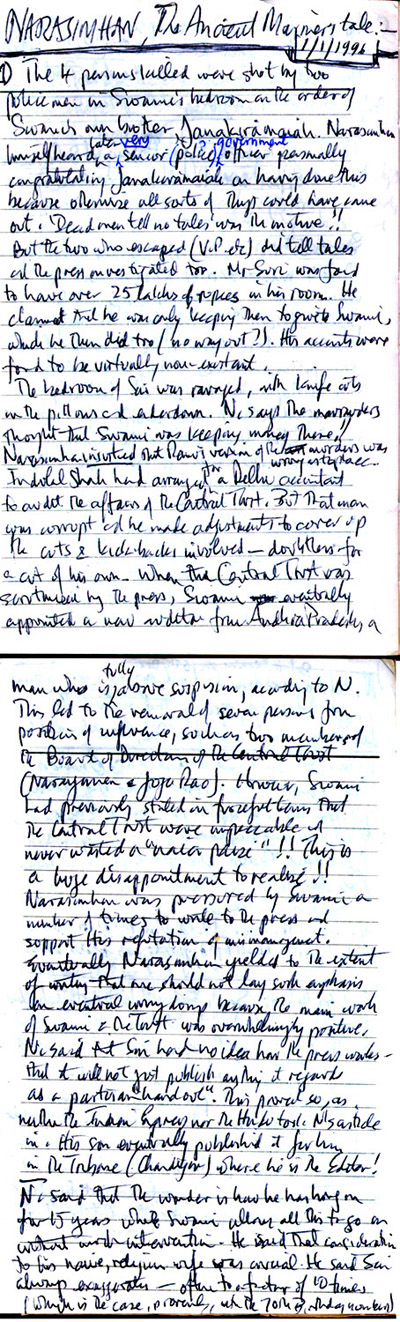 NARASIMHAN, The Ancient Mariner's tale:-
1/1/1996
1) The 4 persons killed were shot by two
policemen in Swami's bedroom on the order of
Swami's own brother, Janakiramaiah. Narasimhan
himself heard, later, a very senior (police) government officer personally
congratulating Janakiramaiah on having done this
because otherwise all sorts of things could have come
out. 'Dead men tell no tales' was the motive!!
But the two who escaped (V.P. etc) did tell tales
and the press investigated too. Mr Suri was found
to have over 25 lakhs of rupees in his room. He
claimed that he was only keeping them to give to Swami,
which he then did too (no way out?). His accounts were
found to be virtually non-existent.
The bedroom of Sai was ravaged, with knife cuts
in the pillows and eiderdown. N. says the marauders
thought that Swami was keeping money there!!
Narasimhan insisted that version of the murders was
Indulal Shah had arranged for a Delhi accountant
to audit the affairs of the Central Trust. But that man
was corrupt and he made adjustments to cover up
the cuts & kick-backs involved — doubtless for
a cut of his own. When the Central Trust was
scrutinised by the press, Swami eventually
appointed a new auditor from Andhra Pradesh, a
man who is fully above suspicion, according to N.
This led to the removal of seven persons from
positions of influence, such as two members of
the Board of Directors of the Central Trust
(Narayanan & Joga Rao). However, Swami
had previously stated in forceful terms that
the Central Trust were impeccable and
never wasted a "naia paise"!! This is
a huge disappointment to realise!!
Narasimhan was pressured by Swami a
number of times to write to the press and
support His refutation of mismanagement.
Eventually Narasimhan yielded to the extent
of writing that one should not lay such emphasis
on eventual wrong doings because the main work
of Swami & the Trust was overwhelmingly positive.
N. said that Sai had no idea how the press works -
that it will not just publish anything it regards
as a partisan "hand out". This proved so, as
neither the Indian Express nor the Hindu took N's article
in. His son eventually published it for him
in the Tribune (Chandigarh) where he is the Editor!
N. said that the wonder is how he has hung on
for 15 years while Swami allows all this to go on
without intervention. He said that consideration
to his naive, religious wife was crucial. He said Sai
always exaggerates — often to a factor of 10 times
(Which is the case, provenly, with the 70th birthday numbers)